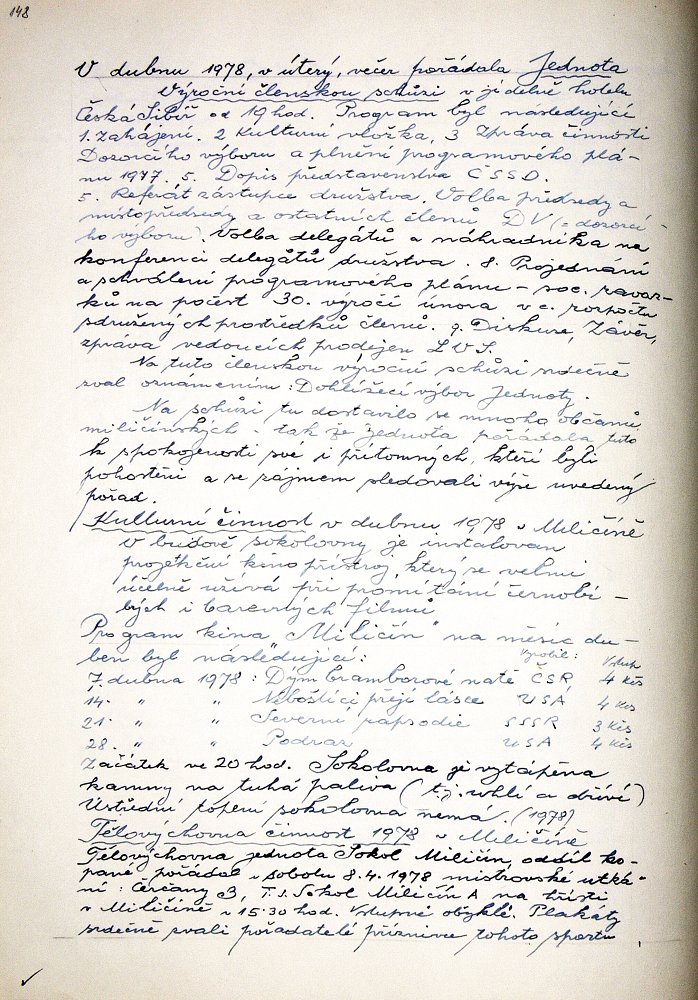 148
V dubnu 1978, v úterý, večer pořádala Jednota
Výroční členskou schůzi v jídelně hotelu
Česká Sibiř od 19 hod. Program byl následující
1. Zahájení. 2 Kulturní vložka, 3 Zpráva činnosti
Dozorčího výboru a plnění programového plá-
nu 1977. 5. Dopis představenstva ČSSD.
5. Referát zástupce družstva. Volba předsedy a
místopředsedy a ostatních členů DV (= dozorčí-
ho výboru). Volba delegátů a náhradníka na
konferenci delegátů družstva. 8. Projednání
a schválení programového plánu - soc. zavaz-
ků na počest 30. výročí února v č. rozpočtu
sdružených prostředků členů. 9. Diskuse, Závěr,
zpráva vedoucích prodejen LVS.
Na tuto členskou výroční schůzi srdečně
zval oznámením: Dohlížecí výbor Jednoty.
Na schůzi tu dostavilo se mnoho občanů
miličínských, tak že Jednota pořádala tuto
k spokojenosti své i přítomných, kteří byli
pohoštěni a se zájmem sledovali výše uvedený
pořad.
Kulturní činnost v dubnu 1978 v Miličíně
V budově sokolovny je instalován
projekční kino přístroj, který se velmi
účelně užívá při promítání černobí-
lých i barevných filmů
Program kina "Miličín" na měsíc du-
ben byl následující: Vyrobil: Vstup
7. dubna 1978: Dým bramborové natě ČSR 4 Kčs
14. " " Nebožtíci přejí lásce USA 4 Kčs
21. " " Severní rapsodie SSSR 3 Kčs
28. " " Podraz USA 4 Kčs
Začátek ve 20 hod. Sokolovna je vytápěna
kamny na tuhá paliva (t.j. uhlí a dříví)
Ústřední topení sokolovna nemá. (1978)
Tělovýchovna činnost 1978 v Miličíně
Tělovýchovna jednota Sokol Miličín, oddíl ko-
pané pořádal v sobotu 8.4.1978 mistrovské utká-
ní: Čerčany B, T.J. Sokol Miličín A na hřišti
v Miličíně v 15:30 hod. Vstupné obvyklé. Plakáty
srdečně zvali pořadatelé příznivce tohoto sportu